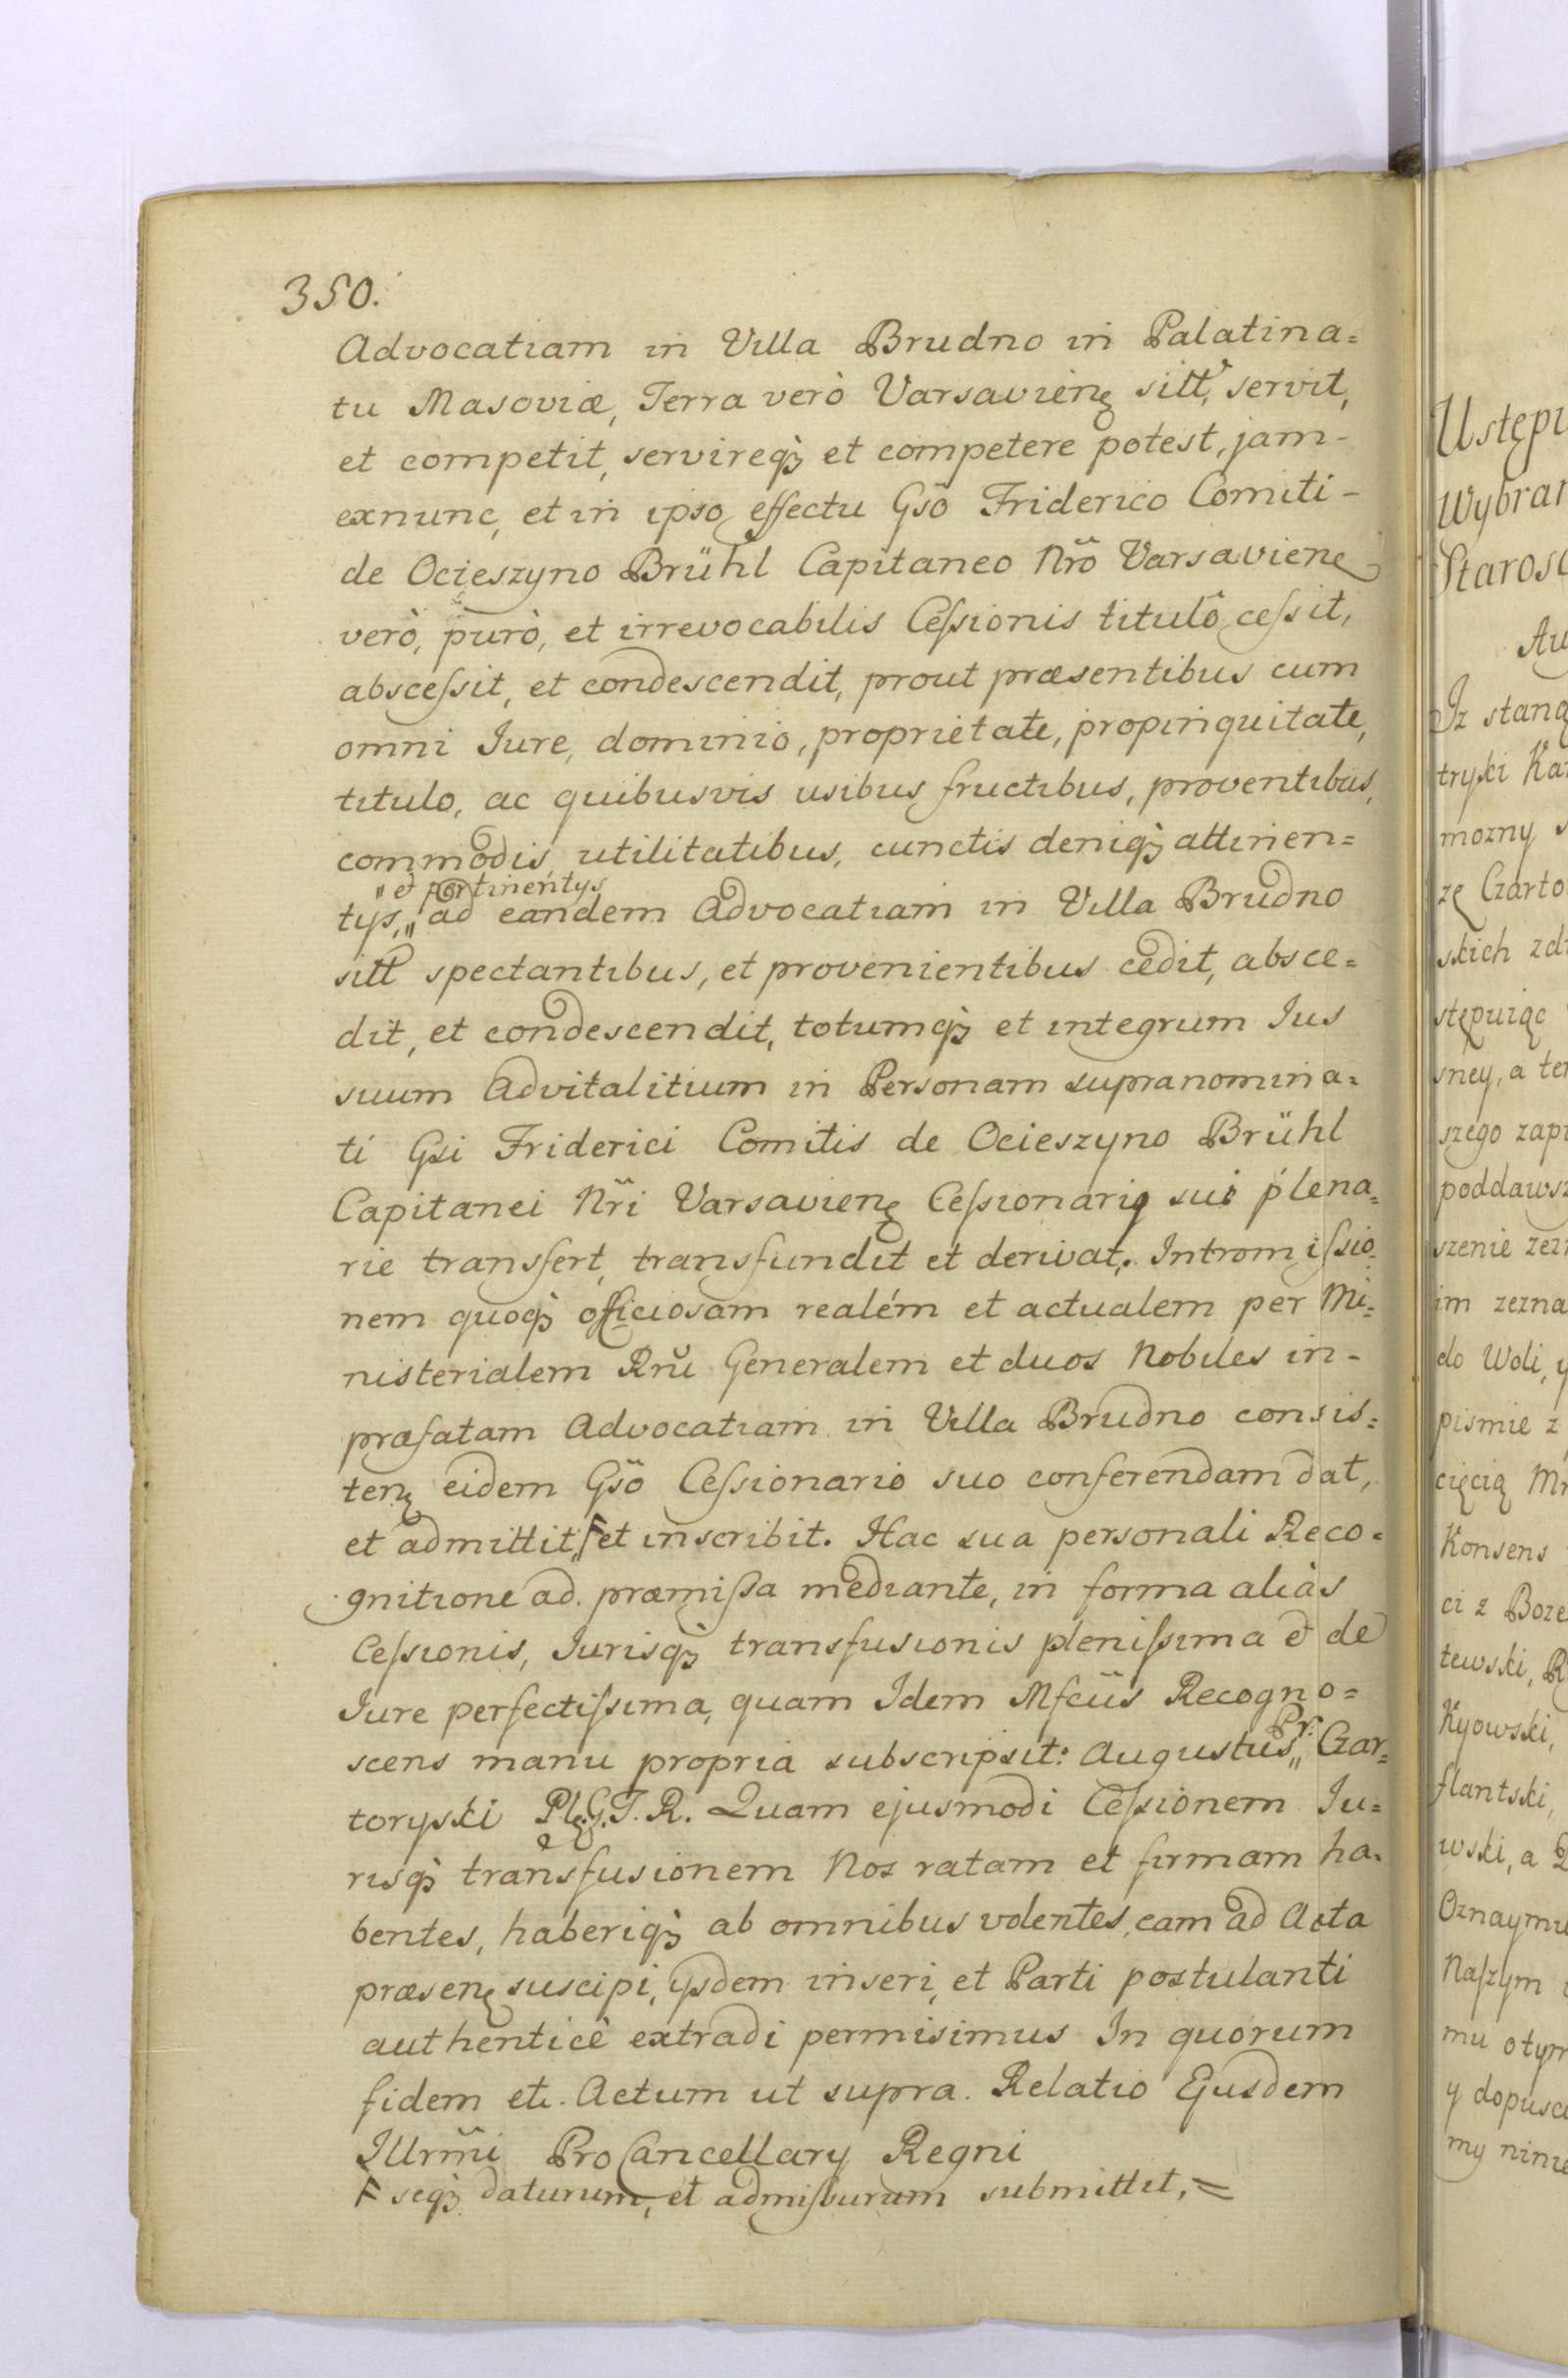 350.
Advocatiam in Villa Brudno in Palatina=
tu Masoviæ, Terra verò Varsavieñ sitt, servit,
et competit, servireq3 et competere potest, jam-
exnunc, et in ipso effectu Gsö Friderico Comiti-
de Ocieszyno Brühl Capitaneo Nrö Varsavien
verò, purò, et irrevocabilis Ceſsionis titulô ceſsit,
absceſsit, et condescendit, prout præsentibus cum
omni Iure, dominio, proprietate, propinquitate,
titulo, ac quibusvis usibus fructibus, proventibus,
commodis, utilitatibus, cunctis deniq3 attinen=
" et pertinentys
tys, " ad eandem Advocatiam in Villa Brudno
sitt spectantibus, et provenientibus cedit, absce=
dit, et condescendit, totumq3 et integrum Ius
suum Advitalitium in Personam supranomina=
ti Gsi Friderici Comitis de Ocieszyno Brühl
Capitanei Nr̃i Varsavien Ceſsionarij sui plena=
rie transfert, transfundit et derivat. Intromiſsio=
nem quoq3 officiosam realém et actualem per Mi=
nisterialem Rrũ Generalem et duos Nobiles in-
præfatam Advocatiam in Villa Brudno consis=
ten eidem Gsö Ceſsionario suo conferendam dat,
et admittit, F et inscribit. Hac sua personali Reco=
gnitione ad præmiſsa mediante, in forma aliàs
Ceſsionis, Iurisq3 transfusionis pleniſsima et de
Iure perfectiſsima, quam Idem Mfcüs Recogno=
scens manu propria subscripsit: Augustus " Pr. Czar=
toryski Pl. G. T. R. Quam ejusmodi Ceſsionem Iu=
risq3 transfusionem Nos ratam et firmam ha=
bentes, haberiq3 ab omnibus volentes, eam ad Acta
præsen suscipi, ijsdem inseri, et Parti postulanti
authenticè extradi permisimus In quorum
fidem etc. Actum ut supra. Relatio Ejusdem
Illrm̃i ProCancellary Regni
F seq3 daturum, et admiſsurum submittit, =
Ustępu
Wybran
Starosc
Au
Iz staną
tryski Ka
mozny s
zę Czarto
skich zdr
stępuiąc
sney, a ter
szego zapi
poddawsz
szenie zez
im zezna
do Woli, y
pismie z
cięcią Mr
Konsens
ci z Boze
tewski, R
Kyowski,
flantski,
wski, a
Oznaymu
Naſzym
mu otym
y dopusc
my ninie